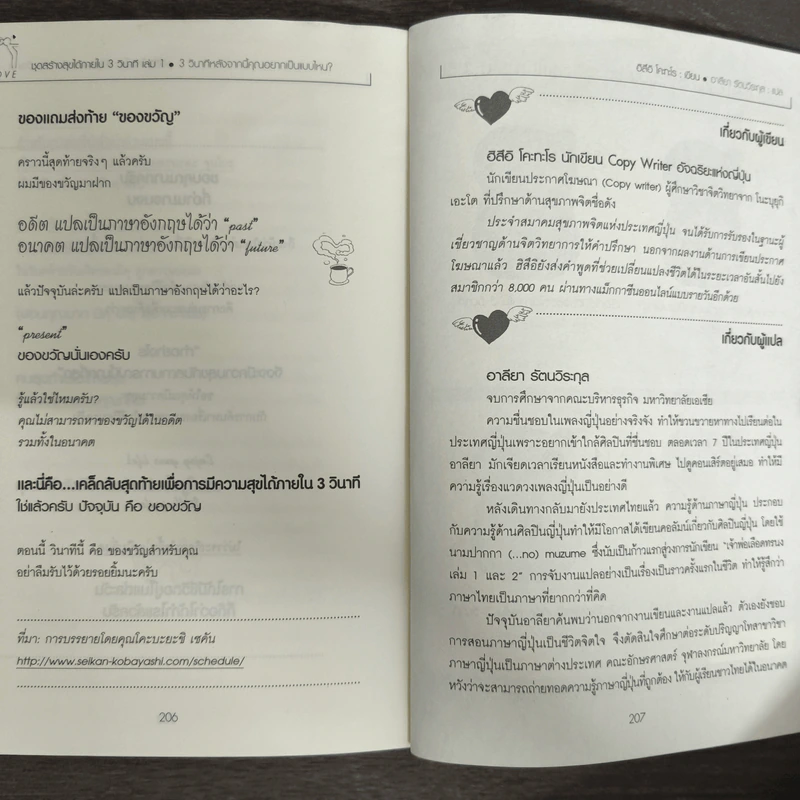 LOVE
ชุดสร้างสุขได้ภายใน 3 วินาที เล่ม 1 • 3 วินาทีหลังจากนี้คุณอยากเป็นแบบไหน?
ของแถมส่งท้าย "ของขวัญ"
คราวนี้สุดท้ายจริงๆ แล้วครับ
ผมมีของขวัญมาฝาก
อดีต แปลเป็นภาษาอังกฤษได้ว่า "past"
อนาคต แปลเป็นภาษาอังกฤษได้ว่า "future"
แล้วปัจจุบันล่ะครับ แปลเป็นภาษาอังกฤษได้ว่าอะไร?
"present"
ของขวัญนั่นเองครับ
รู้แล้วใช่ไหมครับ?
คุณไม่สามารถหาของขวัญได้ในอดีต
รวมทั้งในอนาคต
และนี่คือ...เคล็ดลับสุดท้ายเพื่อการมีความสุขได้ภายใน 3 วินาที
ใช่แล้วครับ ปัจจุบัน คือ ของขวัญ
ตอนนี้ วินาทีนี้ คือ ของขวัญสำหรับคุณ
อย่าลืมรับไว้ด้วยรอยยิ้มนะครับ
ที่มา: การบรรยายโดยคุณโคะบะยะชิ เซคัน
http://www.seikan-kobayashi.com/schedule/
206
ฮิสึอิ โคะทะโร : เขียน • อาลียา รัตนวิระกุล : แปล
เกี่ยวกับผู้เขียน
ฮิสึอิ โคะทะโร นักเขียน Copy Writer อัจฉริยะแห่งญี่ปุ่น
นักเขียนประกาศโฆษณา (Copy writer) ผู้ศึกษาวิชาจิตวิทยาจาก โนะบุยุกิ
เอะโต ที่ปรึกษาด้านสุขภาพจิตชื่อดัง
ประจำสมาคมสุขภาพจิตแห่งประเทศญี่ปุ่น จนได้รับการรับรองในฐานะผู้
เชี่ยวชาญด้านจิตวิทยาการให้คำปรึกษา นอกจากผลงานด้านการเขียนประกาศ
โฆษณาแล้ว ฮิสึอิยังส่งคำพูดที่ช่วยเปลี่ยนแปลงชีวิตได้ในระยะเวลาอันสั้นไปยัง
สมาชิกกว่า 8,000 คน ผ่านทางแม็กกาซีนออนไลน์แบบรายวันอีกด้วย
เกี่ยวกับผู้แปล
อาลียา รัตนวิระกุล
จบการศึกษาจากคณะบริหารธุรกิจ มหาวิทยาลัยเอเชีย
ความชื่นชอบในเพลงญี่ปุ่นอย่างจริงจัง ทำให้ขวนขวายหาทางไปเรียนต่อใน
ประเทศญี่ปุ่นเพราะอยากเข้าใกล้ศิลปินที่ชื่นชอบ ตลอดเวลา 7 ปีในประเทศญี่ปุ่น
อาลียา มักเจียดเวลาเรียนหนังสือและทำงานพิเศษ ไปดูคอนเสิร์ตอยู่เสมอ ทำให้มี
ความรู้เรื่องแวดวงเพลงญี่ปุ่นเป็นอย่างดี
หลังเดินทางกลับมายังประเทศไทยแล้ว ความรู้ด้านภาษาญี่ปุ่น ประกอบ
กับความรู้ด้านศิลปินญี่ปุ่นทำให้มีโอกาสได้เขียนคอลัมน์เกี่ยวกับศิลปินญี่ปุ่น โดยใช้
นามปากกา (...no) muzume ซึ่งนับเป็นก้าวแรกสู่วงการนักเขียน "เจ้าพ่อเลือดทรนง
เล่ม 1 และ 2" การจับงานแปลอย่างเป็นเรื่องเป็นราวครั้งแรกในชีวิต ทำให้รู้สึกว่า
ภาษาไทยเป็นภาษาที่ยากกว่าที่คิด
ปัจจุบันอาลียาค้นพบว่านอกจากงานเขียนและงานแปลแล้ว ตัวเองยังชอบ
การสอนภาษาญี่ปุ่นเป็นชีวิตจิตใจ จึงตัดสินใจศึกษาต่อระดับปริญญาโทสาขาวิชา
ภาษาญี่ปุ่นเป็นภาษาต่างประเทศ คณะอักษรศาสตร์ จุฬาลงกรณ์มหาวิทยาลัย โดย
หวังว่าจะสามารถถ่ายทอดความรู้ภาษาญี่ปุ่นที่ถูกต้อง ให้กับผู้เรียนชาวไทยได้ในอนาคต
207